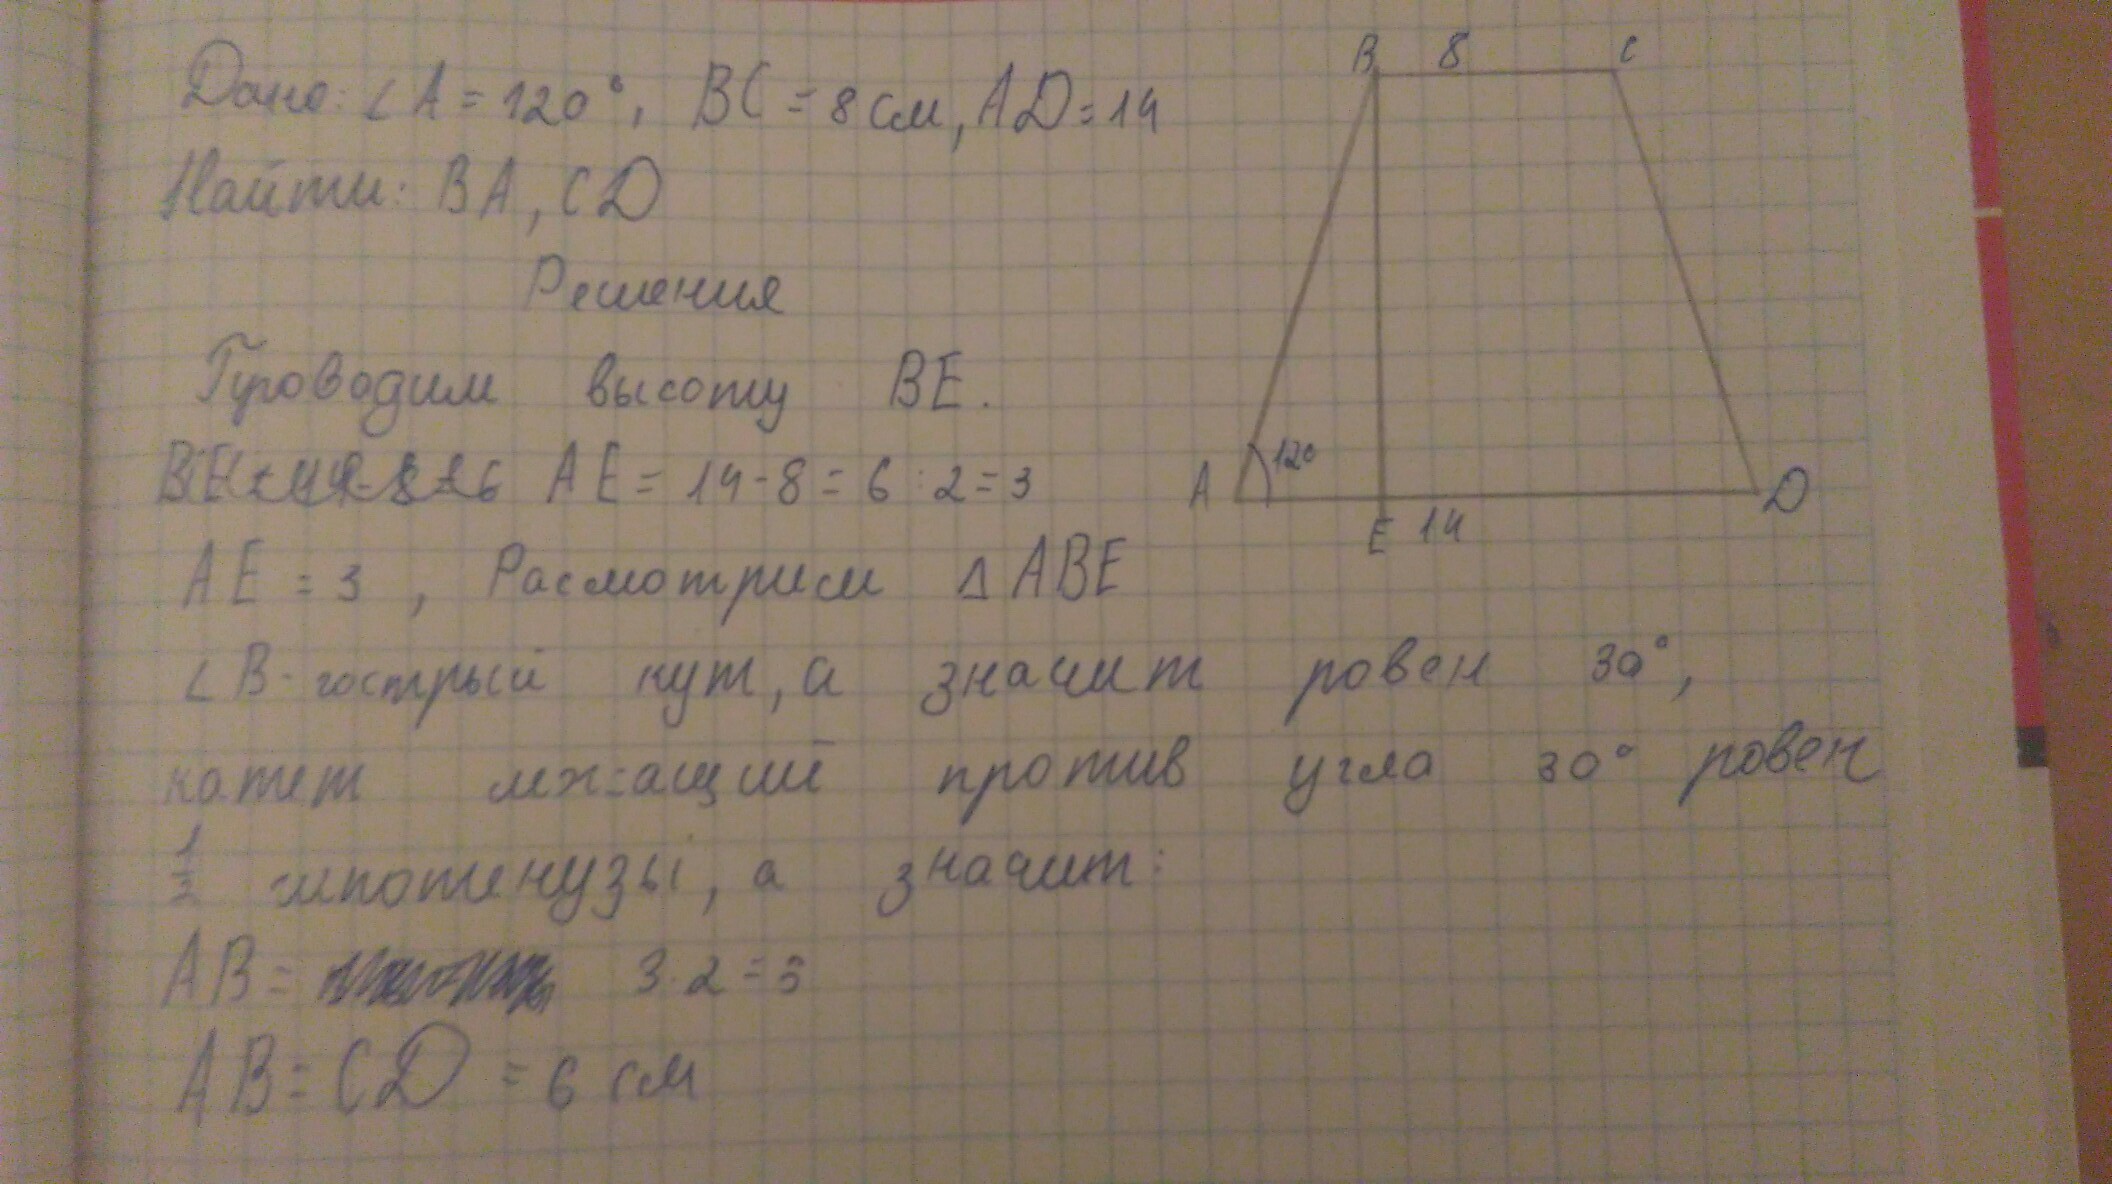 Дано: ∠A = 120°, BC = 8 см, AD = 14
Найти: BA, CD
Решения
Проводим высоту BE.
AE = 14 - 8 = 6 : 2 = 3
AE = 3 , Расмотрим △ ABE
∠B - гострый кут, а значит ровен 30°,
катет лежащий против угла 30° ровен
1/2 гипотенузы, а значит:
AB = 3 · 2 =
AB = CD = 6 см
B 8 C
A 120 D
E 14